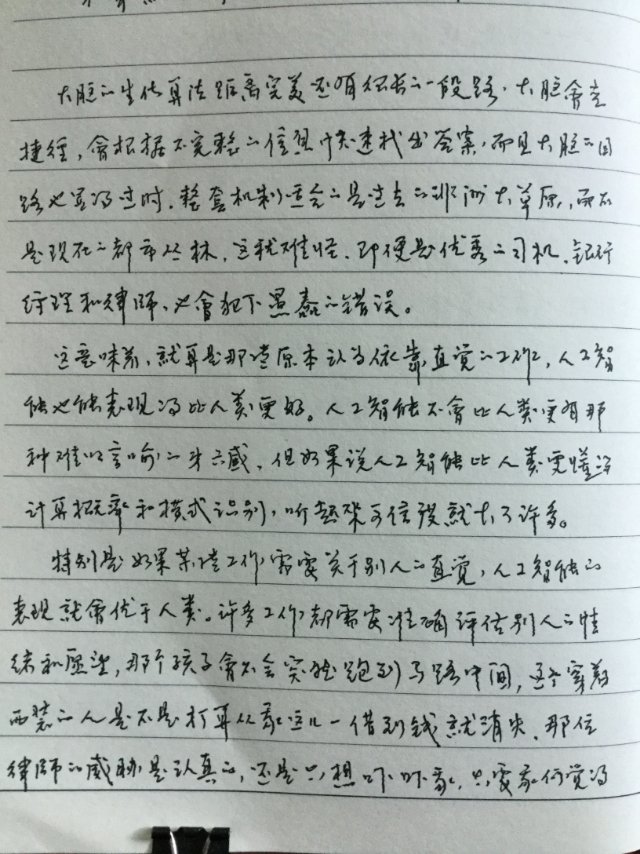 大脑的生化算法距离完美还有很长的一段路，大脑會走
捷徑，會根据不完整的信息快速找出答案，而且大脑的回
路也显得过时，整套机制适合的是过去的非洲大草原，而不
是现在的都市丛林，这就难怪，即便是优秀的司机、銀行
经理和律师，也會犯下愚蠢的错误。
这意味着，就算是那些原本认为依靠直觉的工作，人工智
能也能表现得比人类更好。人工智能不會比人类更有那
种难以言喻的第六感，但如果说人工智能比人类更懂得
计算概率和模式识别，听起来可信度就大了许多。
特别是如果某些工作需要关于别人的直觉，人工智能的
表现就會优于人类。许多工作都需要准确评估别人的情
绪和愿望，那个孩子會不会突然跑到马路中间，这个穿着
西装的人是不是打算从我这儿一借到钱就消失，那位
律师的威胁是认真的，还是只想吓吓我，只要我们觉得